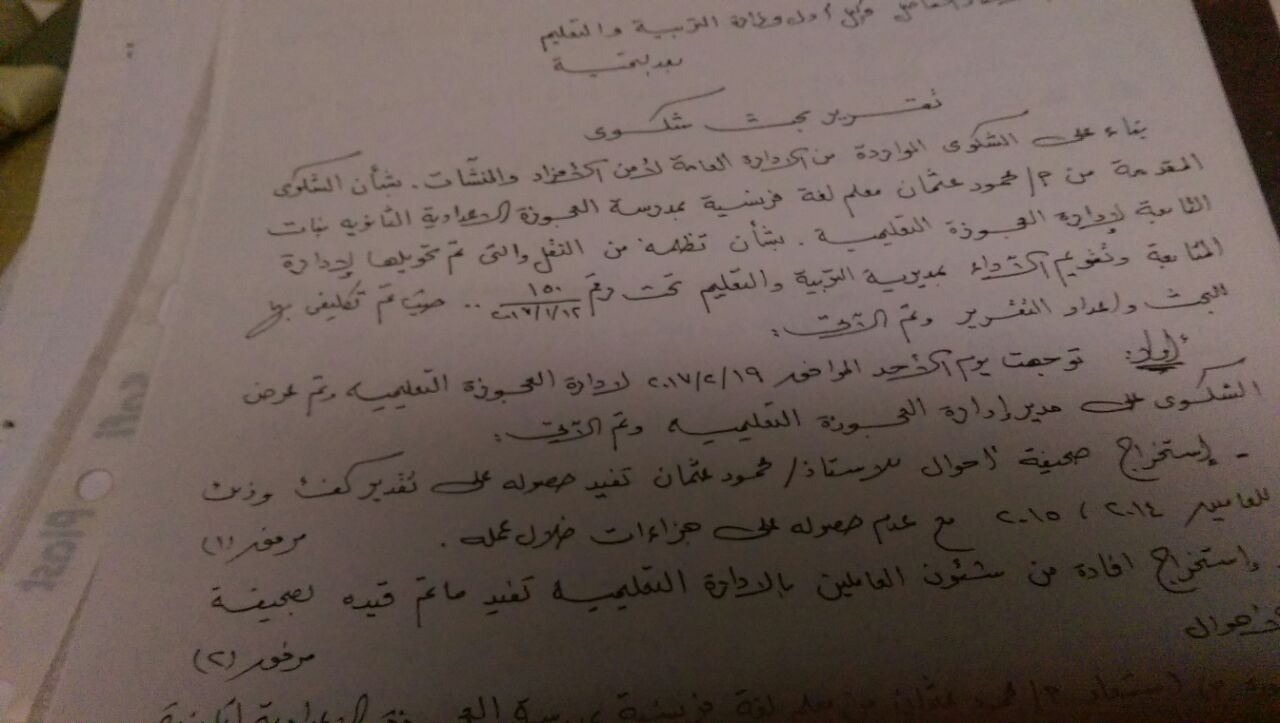 وكيل أول وزارة التربية والتعليم
بعد التحية
تقرير بحث شكوى
بناء على الشكوى الواردة من الإدارة العامة لأمن الأفراد والمنشآت . بشأن الشكوى
المقدمة من م/ محمود عثمان معلم لغة فرنسية بمدرسة العجوزة الإعدادية الثانويه بنات
التابعة لإدارة العجوزة التعليمية . بشأن تظلمه من النقل والتى تم تحويلها لإدارة
المتابعة وتقويم الأداء بمديرية التربية والتعليم تحت رقم ١٥٠ / ٢٠١٧/١/١٢ .. حيث تم تكليفى بها
البحث وإعداد التقرير وتم الآتى :
أولاً: توجهت يوم الأحد الموافق ٢٠١٧/٢/١٩ لإدارة العجوزة التعليميه وتم عرض
الشكوى على مدير إدارة العجوزة التعليميه وتم الآتى :
- إستخراج صحيفة أحوال للاستاذ/ محمود عثمان تفيد حصوله على تقدير كفء وذلك
للعامين ٢٠١٤ ، ٢٠١٥ مع عدم حصوله على جزاءات خلال عمله . مرفق (١)
- وإستخراج افادة من شئون العاملين بالادارة التعليمية تفيد ما تم قيده بصحيفة
الأحوال مرفق (٢)
م/ محمود عثمان معلم لغة فرنسية بمدرسة العجوزة الإعدادية
call
plast